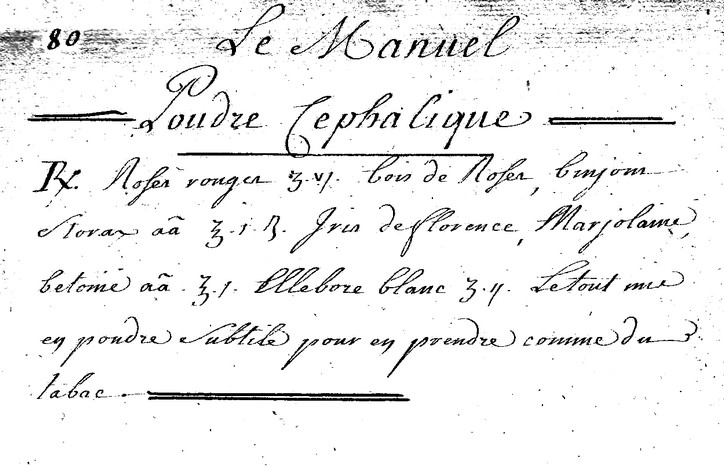 80 Le Manuel
Poudre Cephalique
Rx. Roses rouges ʒ.vj. bois de Roses, binjoin
Storax aã ʒ.i ß. Iris de florence, Marjolaine,
betoine aã ʒ.j. Ellebore blanc ʒ.ij. Le tout mis
en poudre subtile pour en prendre comme du
tabac